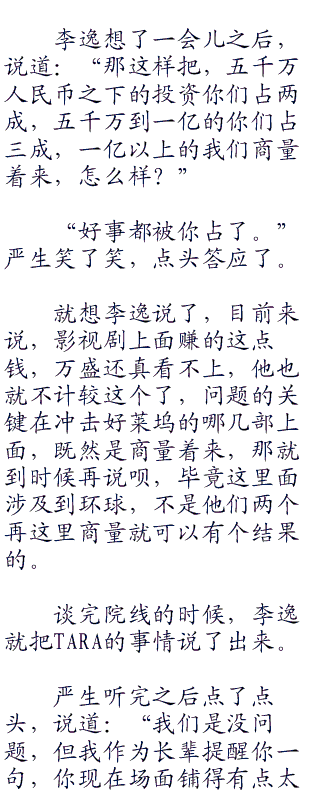 李逸想了一会儿之后，
说道：“那这样把，五千万
人民币之下的投资你们占两
成，五千万到一亿的你们占
三成，一亿以上的我们商量
着来，怎么样？”
“好事都被你占了。”
严生笑了笑，点头答应了。
就想李逸说了，目前来
说，影视剧上面赚的这点
钱，万盛还真看不上，他也
就不计较这个了，问题的关
键在冲击好莱坞的哪几部上
面，既然是商量着来，那就
到时候再说呗，毕竟这里面
涉及到环球，不是他们两个
再这里商量就可以有个结果
的。
谈完院线的时候，李逸
就把TARA的事情说了出来。
严生听完之后点了点
头，说道：“我们是没问
题，但我作为长辈提醒你一
句，你现在场面铺得有点太